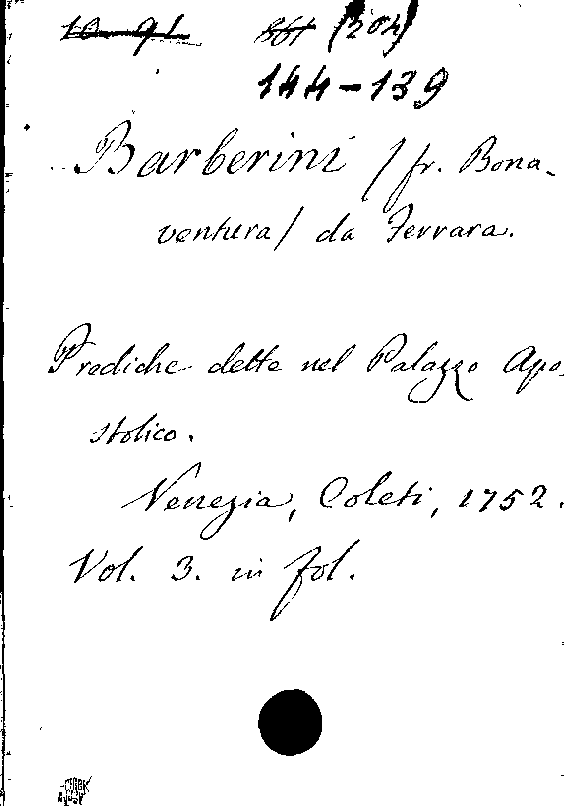 10 91 861 (204)
144-139
Barberini /fr. Bona-
ventura/ da Ferrara.
Prediche dette nel Palazzo Apo-
stolico.
Venezia, Coleti, 1752.
Vol. 3. in fol.